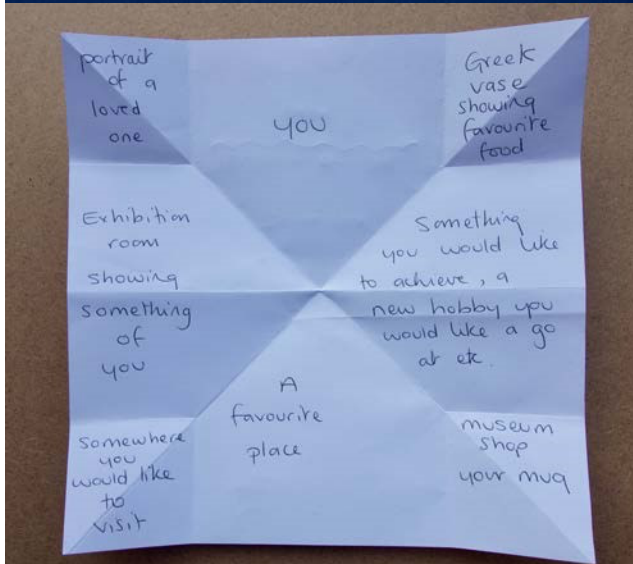 portrait
of a
loved
one
YOU
Greek
vase
showing
favourite
food
Exhibition
room
showing
something
of
you
Something
you would like
to achieve, a
new hobby you
would like a go
at etc.
Somewhere
you
would like
to
visit
A
favourite
place
museum
shop
your mug